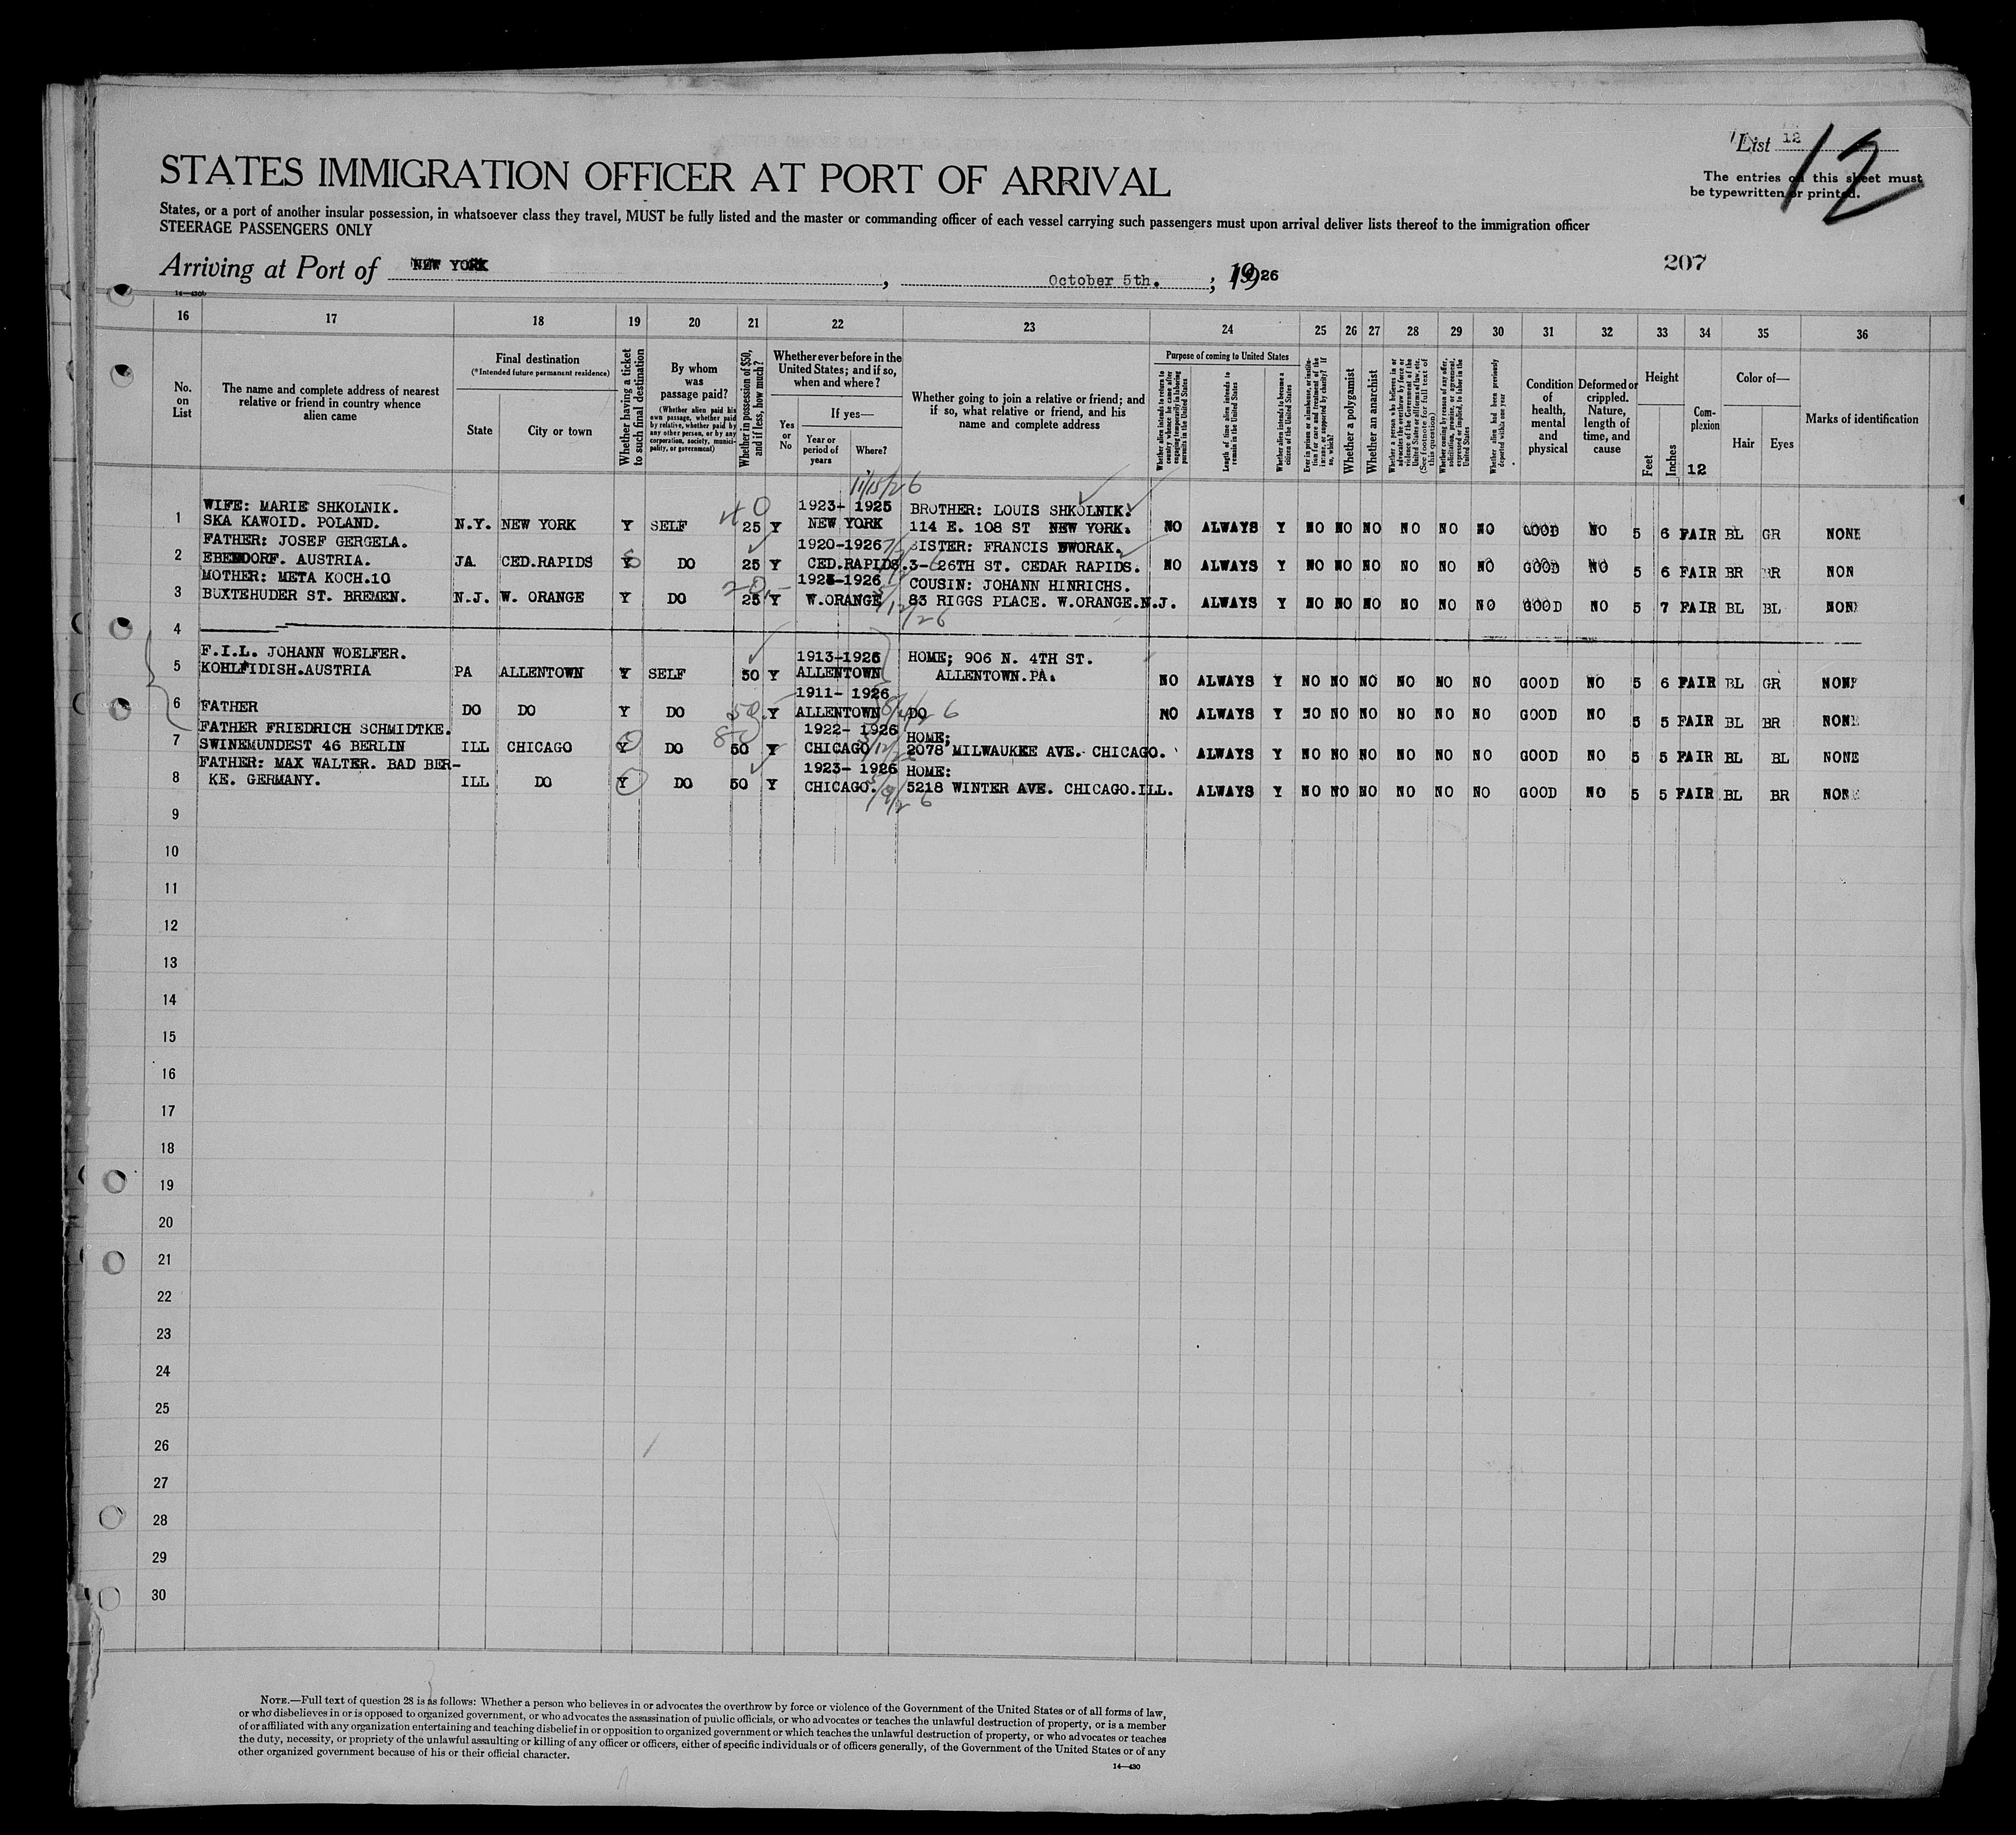 List 12
12
STATES IMMIGRATION OFFICER AT PORT OF ARRIVAL
The entries on this sheet must
be typewritten or printed.
States, or a port of another insular possession, in whatsoever class they travel, MUST be fully listed and the master or commanding officer of each vessel carrying such passengers must upon arrival deliver lists thereof to the immigration officer
STEERAGE PASSENGERS ONLY
207
Arriving at Port of NEW YORK, October 5th. ; 1926
14—430b
16 17 18 19 20 21 22 23 24 25 26 27 28 29 30 31 32 33 34 35 36
No. on List
The name and complete address of nearest relative or friend in country whence alien came
Final destination
(*Intended future permanent residence)
State
City or town
Whether having a ticket to such final destination
By whom was passage paid?
(Whether alien paid his own passage, whether paid by relative, whether paid by any other person, or by any corporation, society, municipality, or government)
Whether in possession of $50, and if less, how much?
Whether ever before in the United States; and if so, when and where?
Yes or No
If yes—
Year or period of years
Where?
Whether going to join a relative or friend; and if so, what relative or friend, and his name and complete address
Purpose of coming to United States
Whether alien intends to return to country whence he came after engaging temporarily in laboring pursuits in the United States
Length of time alien intends to remain in the United States
Whether alien intends to become a citizen of the United States
Ever in prison or almshouse, or institution for care and treatment of the insane, or supported by charity? If so, which?
Whether a polygamist
Whether an anarchist
Whether a person who believes in or advocates the overthrow by force or violence of the Government of the United States or all forms of law, etc. (See footnote for full text of this question)
Whether coming by reason of any offer, solicitation, promise, or agreement, expressed or implied, to labor in the United States
Whether alien had been previously deported within one year
Condition of health, mental and physical
Deformed or crippled. Nature, length of time, and cause
Height
Feet
Inches
Complexion
12
Color of—
Hair
Eyes
Marks of identification
11/15/26
WIFE: MARIE SHKOLNIK. 40 1923- 1925 BROTHER: LOUIS SHKOLNIK.
1 SKA KAWOID. POLAND. N.Y. NEW YORK Y SELF 25 Y NEW YORK 114 E. 108 ST NEW YORK. NO ALWAYS Y NO NO NO NO NO NO GOOD NO 5 6 FAIR BL GR NONE
FATHER: JOSEF GERGELA. 1920-1926 SISTER: FRANCIS DWORAK.
2 EBENDORF. AUSTRIA. JA. CED.RAPIDS Y DO 25 Y CED.RAPIDS. 3- 26TH ST. CEDAR RAPIDS. NO ALWAYS Y NO NO NO NO NO NO GOOD NO 5 6 FAIR BR BR NON
MOTHER: META KOCH.10 20 1925-1926 COUSIN: JOHANN HINRICHS.
3 BUXTEHUDER ST. BREMEN. N.J. W. ORANGE Y DO 25 Y W.ORANGE 83 RIGGS PLACE. W.ORANGE.N.J. ALWAYS Y NO NO NO NO NO NO GOOD NO 5 7 FAIR BL BL NONE
4
F.I.L. JOHANN WOELFER. 1913-1926 HOME; 906 N. 4TH ST.
5 KOHLFIDISH.AUSTRIA PA ALLENTOWN Y SELF 50 Y ALLENTOWN ALLENTOWN.PA. NO ALWAYS Y NO NO NO NO NO NO GOOD NO 5 6 FAIR BL GR NONE
1911- 1926
6 FATHER DO DO Y DO 50 Y ALLENTOWN DO NO ALWAYS Y NO NO NO NO NO NO GOOD NO 5 5 FAIR BL BR NONE
FATHER FRIEDRICH SCHMIDTKE. 80 1922- 1926 HOME;
7 SWINEMUNDEST 46 BERLIN ILL CHICAGO Y DO 50 Y CHICAGO 2078 MILWAUKEE AVE. CHICAGO. ALWAYS Y NO NO NO NO NO NO GOOD NO 5 5 FAIR BL BL NONE
FATHER: MAX WALTER. BAD BER- 1923- 1926 HOME:
8 KE. GERMANY. ILL DO Y DO 50 Y CHICAGO. 5218 WINTER AVE. CHICAGO.ILL. ALWAYS Y NO NO NO NO NO NO GOOD NO 5 5 FAIR BL BR NONE
9
10
11
12
13
14
15
16
17
18
19
20
21
22
23
24
25
26
27
28
29
30
NOTE.—Full text of question 28 is as follows: Whether a person who believes in or advocates the overthrow by force or violence of the Government of the United States or of all forms of law,
or who disbelieves in or is opposed to organized government, or who advocates the assassination of public officials, or who advocates or teaches the unlawful destruction of property, or is a member
of or affiliated with any organization entertaining and teaching disbelief in or opposition to organized government or which teaches the unlawful destruction of property, or who advocates or teaches
the duty, necessity, or propriety of the unlawful assaulting or killing of any officer or officers, either of specific individuals or of officers generally, of the Government of the United States or of any
other organized government because of his or their official character.
14—430